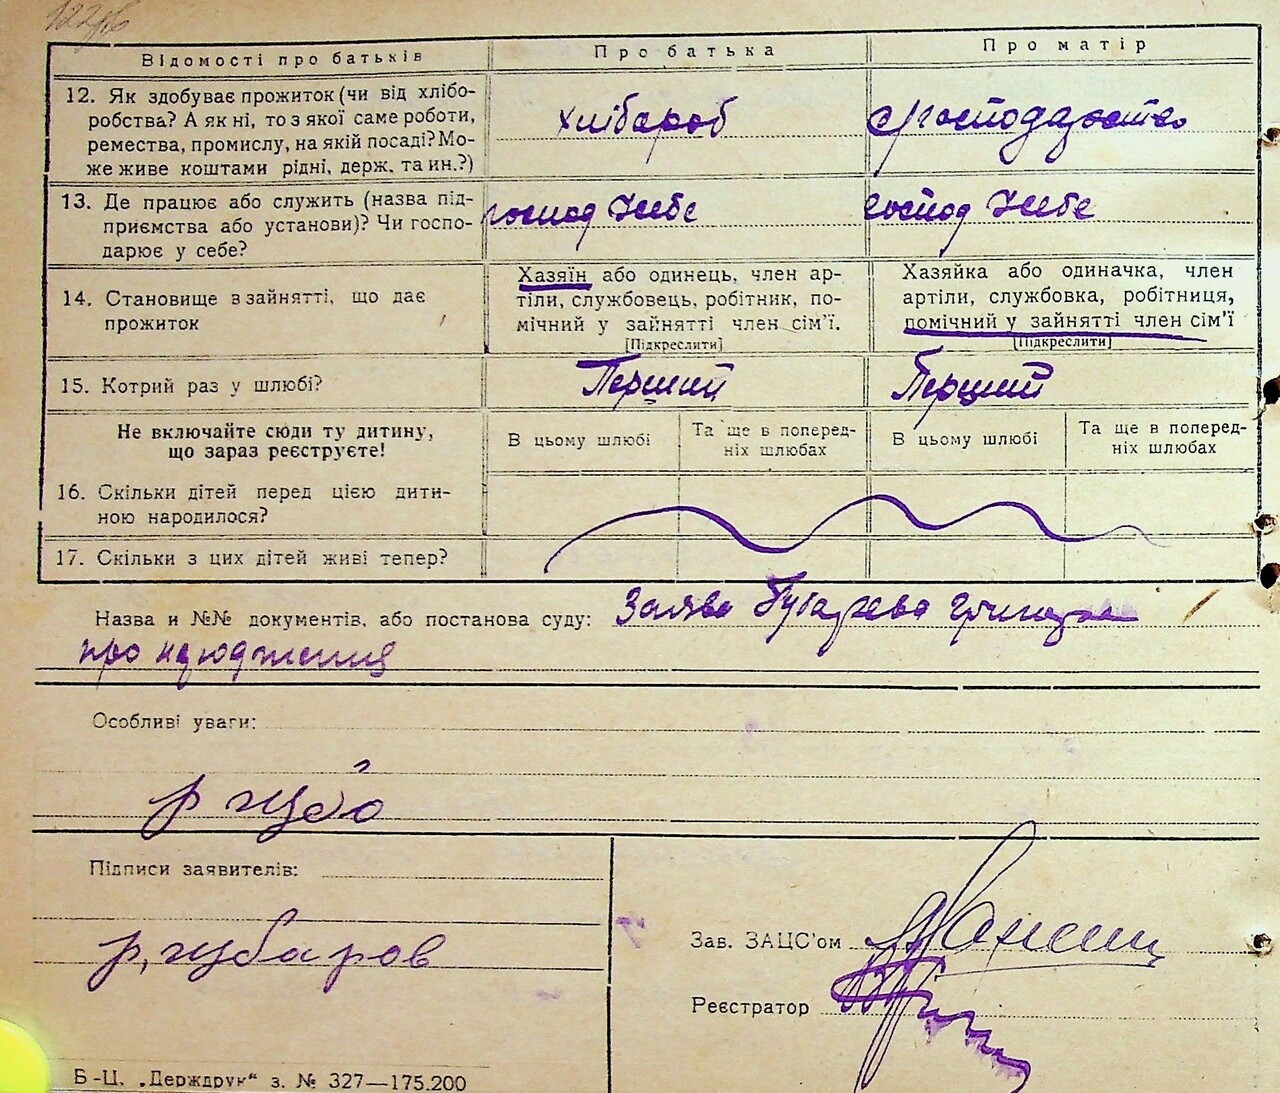 Відомості про батьків
Про батька
Про матір
12. Як здобуває прожиток (чи від хлібо-
робства? А як ні, то з якої саме роботи,
ремества, промислу, на якій посаді? Мо-
же живе коштами рідні, держ. та ин.?)
хлібароб
13. Де працює або служить (назва під-
приємства або установи)? Чи госпо-
дарює у себе?
господ у себе
господ у себе
14. Становище в зайнятті, що дає
прожиток
Хазяїн або одинець, член ар-
тіли, службовець, робітник, по-
мічний у зайнятті член сім'ї.
[Підкреслити]
Хазяйка або одиначка, член
артіли, службовка, робітниця,
помічний у зайнятті член сім'ї
[Підкреслити]
15. Котрий раз у шлюбі?
Перший
Перший
Не включайте сюди ту дитину,
що зараз реєструєте!
В цьому шлюбі
Та ще в поперед-
ніх шлюбах
В цьому шлюбі
Та ще в поперед-
ніх шлюбах
16. Скільки дітей перед цією дити-
ною народилося?
17. Скільки з цих дітей живі тепер?
Назва и №№ документів, або постанова суду: Заява
про
Особливі уваги:
Підписи заявителів:
Зав. ЗАЦС'ом
Реєстратор
Б-Ц. „Держдрук“ з. № 327—175.200